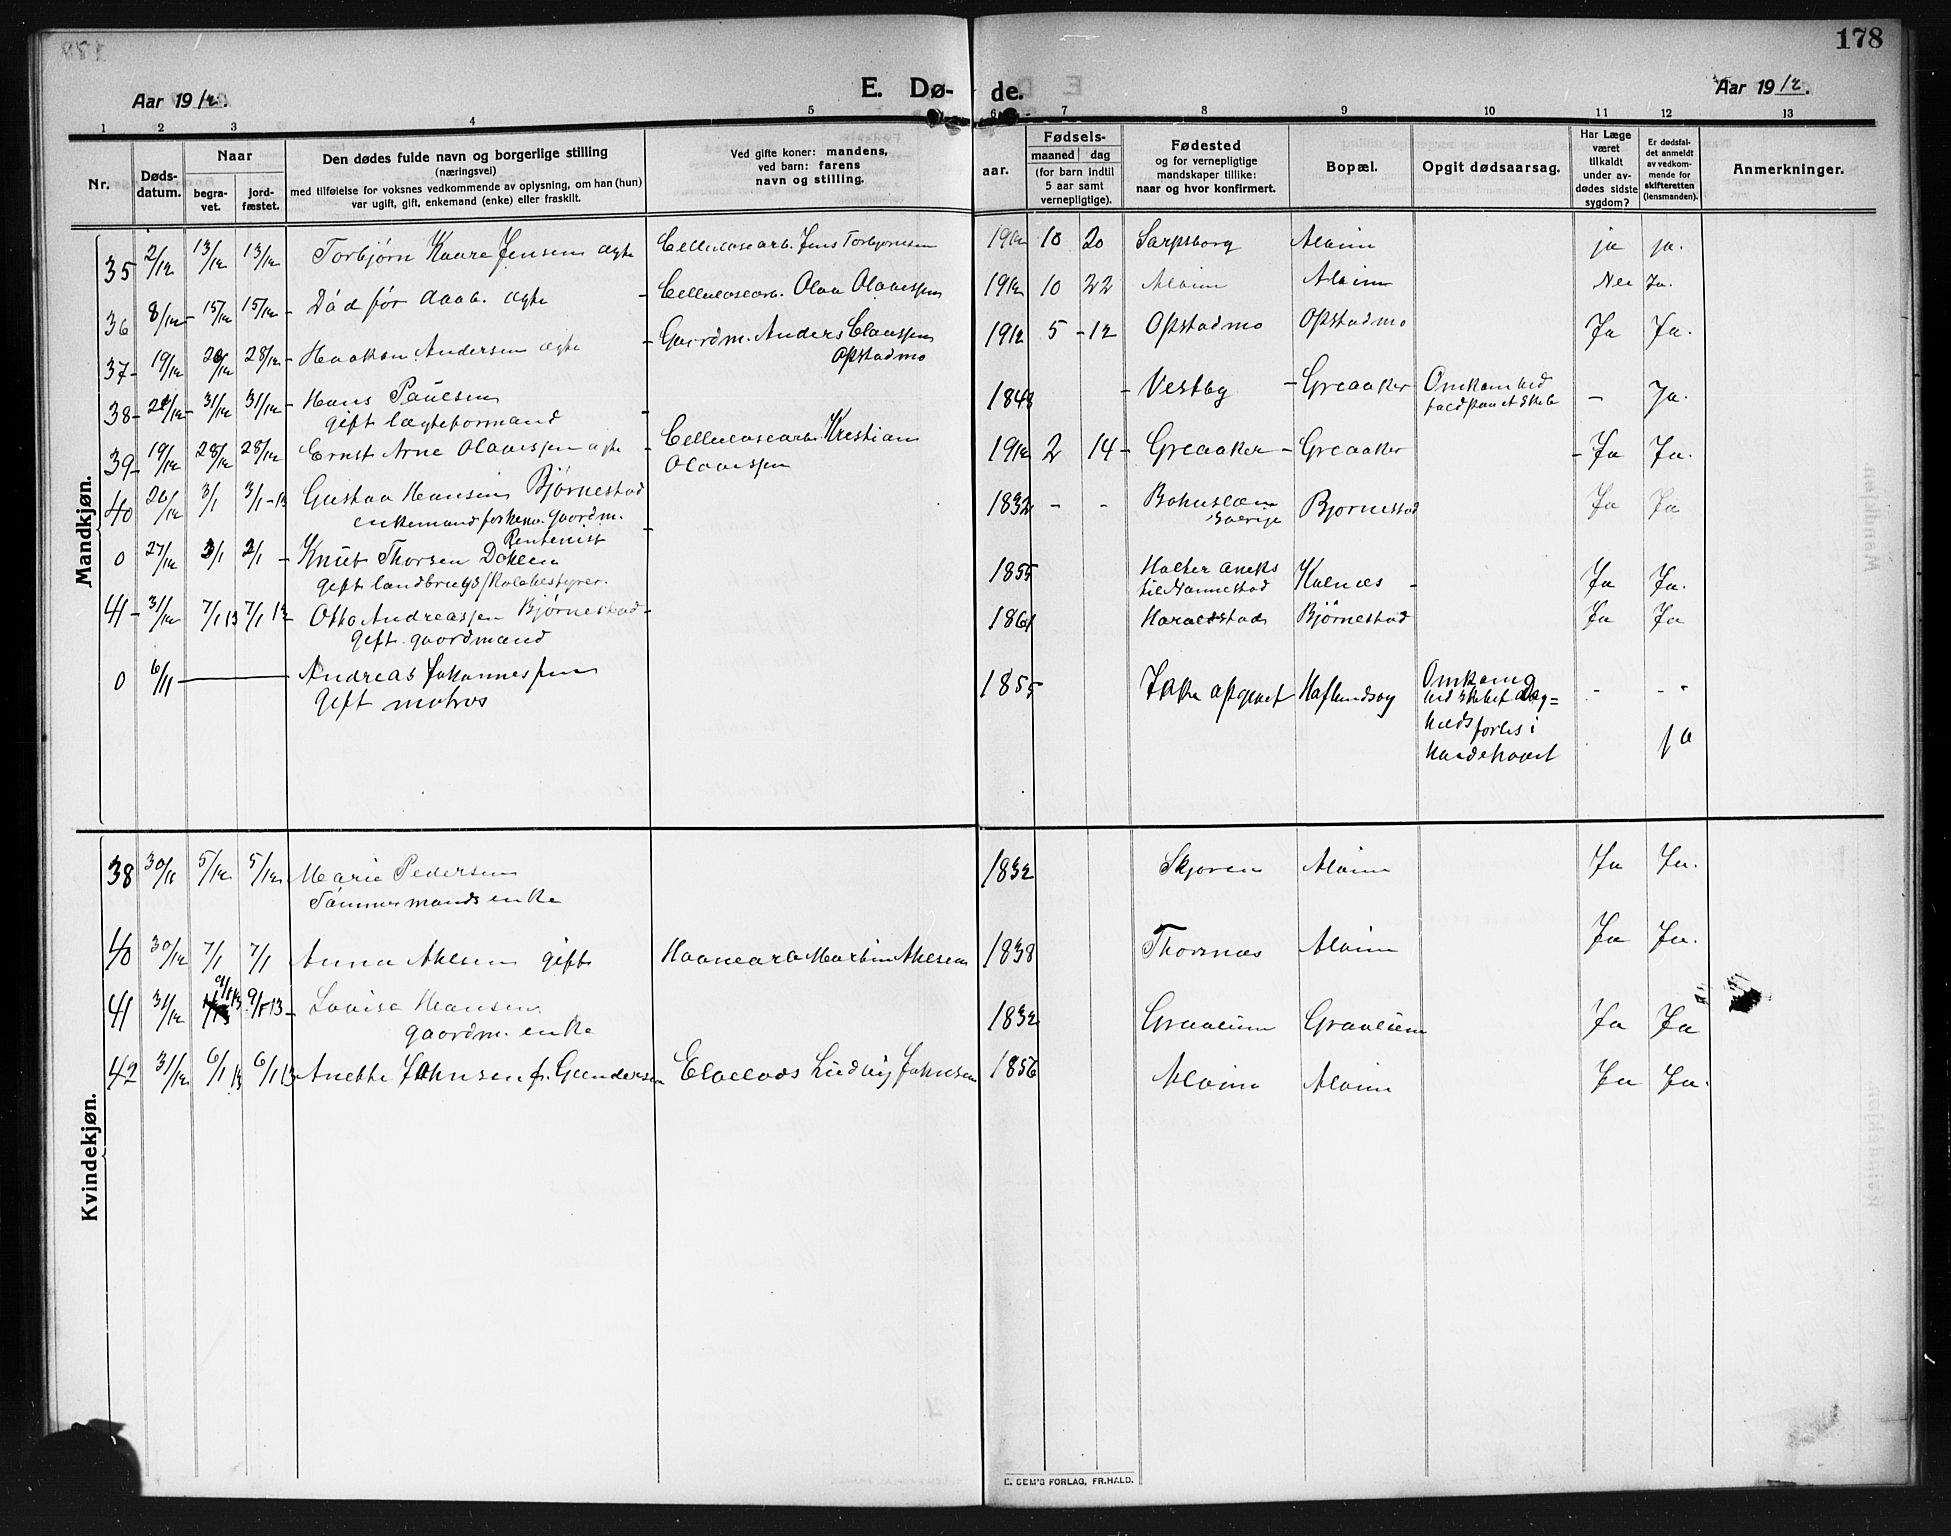 178
Aar 1912.
E. Dø-
de.
Aar 1912.
1 2 3 4 5 6 7 8 9 10 11 12 13
Nr.
Døds-
datum.
Naar
begra-
vet.
jord-
fæstet.
Den dødes fulde navn og borgerlige stilling
(næringsvei)
med tilføielse for voksnes vedkommende av oplysning, om han (hun)
var ugift, gift, enkemand (enke) eller fraskilt.
Ved gifte koner: mandens,
ved barn: farens
navn og stilling.
aar.
Fødsels-
maaned dag
(for barn indtil
5 aar samt
vernepligtige).
Fødested
og for vernepligtige
mandskaper tillike:
naar og hvor konfirmert.
Bopæl.
Opgit dødsaarsag.
Har Læge
været
tilkaldt
under av-
dødes sidste
sygdom?
Er dødsfal-
det anmeldt
av vedkom-
mende for
skifteretten
(lensmanden).
Anmerkninger.
Mandkjøn.
35 2/12 13/12 13/12 Torbjørn Kaare Jensen ægte Cellulosearb. Jens Torbjørnsen 1912 10 20 Sarpsborg Alvim ja ja.
36 8/12 - 15/12 15/12 - Død før daab. ægte - Cellulosearb. Olav Olavessen 1912 10 22 Alvim Alvim Nei Ja.
37 - 19/12 28/12 28/12 - Haakon Andersen ægte - Gaardm. Anders Claussen 1912 5 - 12 Opstadmo Opstadmo Ja Ja.
Opstadmo
38 - 31/12 31/12 - Hans Paulsen - 1848 - Vestby - Greaaker Omkom ved - Ja.
gift lægteformand
39 - 19/12 28/12 28/12 - Ernst Arne Olavessen ægte - Cellulosearb. Kristian 1912 2 14 - Greaaker - Greaaker - Ja Ja.
Olavessen
40 26/12 3/1 3/1-13 Gustav Hansen Bjørnestad 1832 - - Bohuslæn Bjørnestad Ja Ja
Sverige
enkemand forhenv. gaardm.
Rentenist
0 27/12 2/1 - Knut Thorsen Dohlen 1855 Holter aneks Kalnæs - Ja Ja.
til Nannestad
gift landbrugsskolebestyrer.
41 - 31/12 7/1 13 7/1 13 Otto Andreassen Bjørnestad - 1861 Haraldstad Bjørnestad Ja Ja
gift gaardmand
0 6/11 Andreas Johannessen 1855 Ikke opgivet Haflundsøy Omkom - - -
gift matros
ved skibet Dag-
forlis i
ja
Kvindekjøn.
38 30/11 5/12 5/12 Marie Pedersen 1832 Skjøren Alvim Ja Ja.
Tømmermands enke
40 30/12 7/1 7/1 Anna Ahlsen gift Havnearb Martin Ahlsen 1838 Thorsnæs Alvim Ja Ja.
41 31/12 9/1 13 9/1 13 - Lovise Hansen 1832 Graaleum Graaleum Ja Ja
gaardm. enke
42 31/12 6/1 13 6/1 13 Anette Johnsen f. Gundersen Ludvig Johnsen 1856 Alvim Alvim Ja Ja.
E. SEM'S FORLAG, FR.HALD.